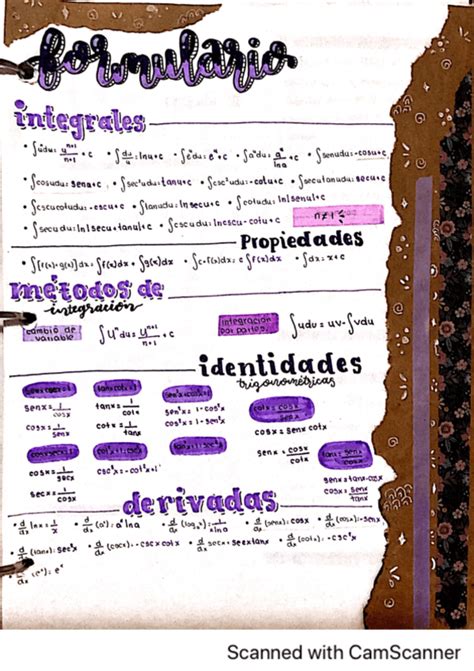 formulario
integrales
• ∫uⁿdu= uⁿ⁺¹/n+1 +c • ∫du/u= lnu+c • ∫eᵘdu= eᵘ+c • ∫aᵘdu= aᵘ/lna +c • ∫senudu= -cosu+c
• ∫cosudu= senu+c • ∫sec²udu= tanu+c • ∫csc²udu= -cotu+c • ∫secutanudu= secu+c
• ∫cscucotudu= -cscu+c • ∫tanudu= ln secu+c • ∫cotudu= ln|senu|+c
• ∫secudu= ln|secu+tanu|+c ∫cscudu= lncscu-cotu+c n≠1
Propiedades
• ∫[f(x)+g(x)]dx= ∫f(x)dx+∫g(x)dx • ∫c•f(x)dx= c∫f(x)dx • ∫dx= x+c
métodos de
integración
cambio de variable ∫uⁿdu= uⁿ⁺¹/n+1 +c integración por partes ∫udv= uv-∫vdu
identidades
trigonométricas
senx= 1/cscx tanx= 1/cotx sen²x= 1-cos²x cotx= cosx/senx
cscx= 1/senx cotx= 1/tanx cos²x= 1-sen²x cosx= senx cotx
senx= cosx/cotx tanx= senx/cosx
cosx= 1/secx csc²x-cot²x=1 senx=tanx•cosx
secx= 1/cosx cosx= senx/tanx
derivadas
• d/dx lnx= 1/x • d/dx (aˣ)= aˣlna • d/dx = 1/xlna • d/dx (senx)= cosx • d/dx (cosx)= -senx
• d/dx (tanx)= sec²x • d/dx -cscxcotx • d/dx secx= secxtanx • d/dx (cotx)= -csc²x
d/dx (eˣ)= eˣ
Scanned with CamScanner